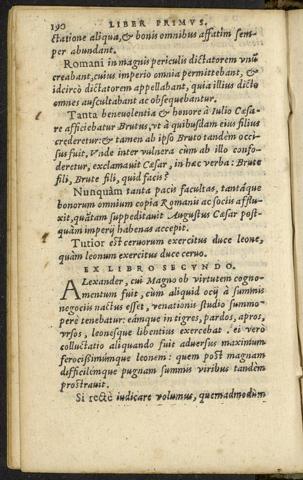 190 LIBER PRIMVS.
ctatione aliqua, & bonis omnibus affatim sem-
per abundant.
Romani in magnis periculis dictatorem vnū
creabant, cuius imperio omnia permittebant, &
idcircò dictatorem appellabant, quia illius dictio
omnes auscultabant ac obsequebantur.
Tanta beneuolentia & honore à Iulio Cæsa-
re afficiebatur Brutus, vt à quibusdam eius filius
crederetur: & tamen ab ipso Bruto tandèm occi-
sus fuit. Vnde inter vulnera cùm ab illo confo-
deretur, exclamauit Cæsar, in hæc verba: Brute
fili, Brute fili, quid facis?
Nunquàm tanta pacis facultas, tantáque
bonorum omnium copia Romanis ac sociis afflu-
xit, quātam suppeditauit Augustus Cæsar post-
quàm imperij habenas accepit.
Tutior est ceruorum exercitus duce leone,
quàm leonum exercitus duce ceruo.
EX LIBRO SECVNDO.
ALexander, cui Magno ob virtutem cogno-
mentum fuit, cùm aliquid ocij à summis
negociis nactus esset, venationis studio summo-
pere tenebatur: eámque in tigres, pardos, apros,
vrsos, leonesque libentius exercebat. ei verò
colluctatio aliquando fuit aduersus maximum
ferocissimúmque leonem: quem post magnam
difficilémque pugnam summis viribus tandèm
prostrauit.
Si rectè iudicare volumus, quemadmodùm